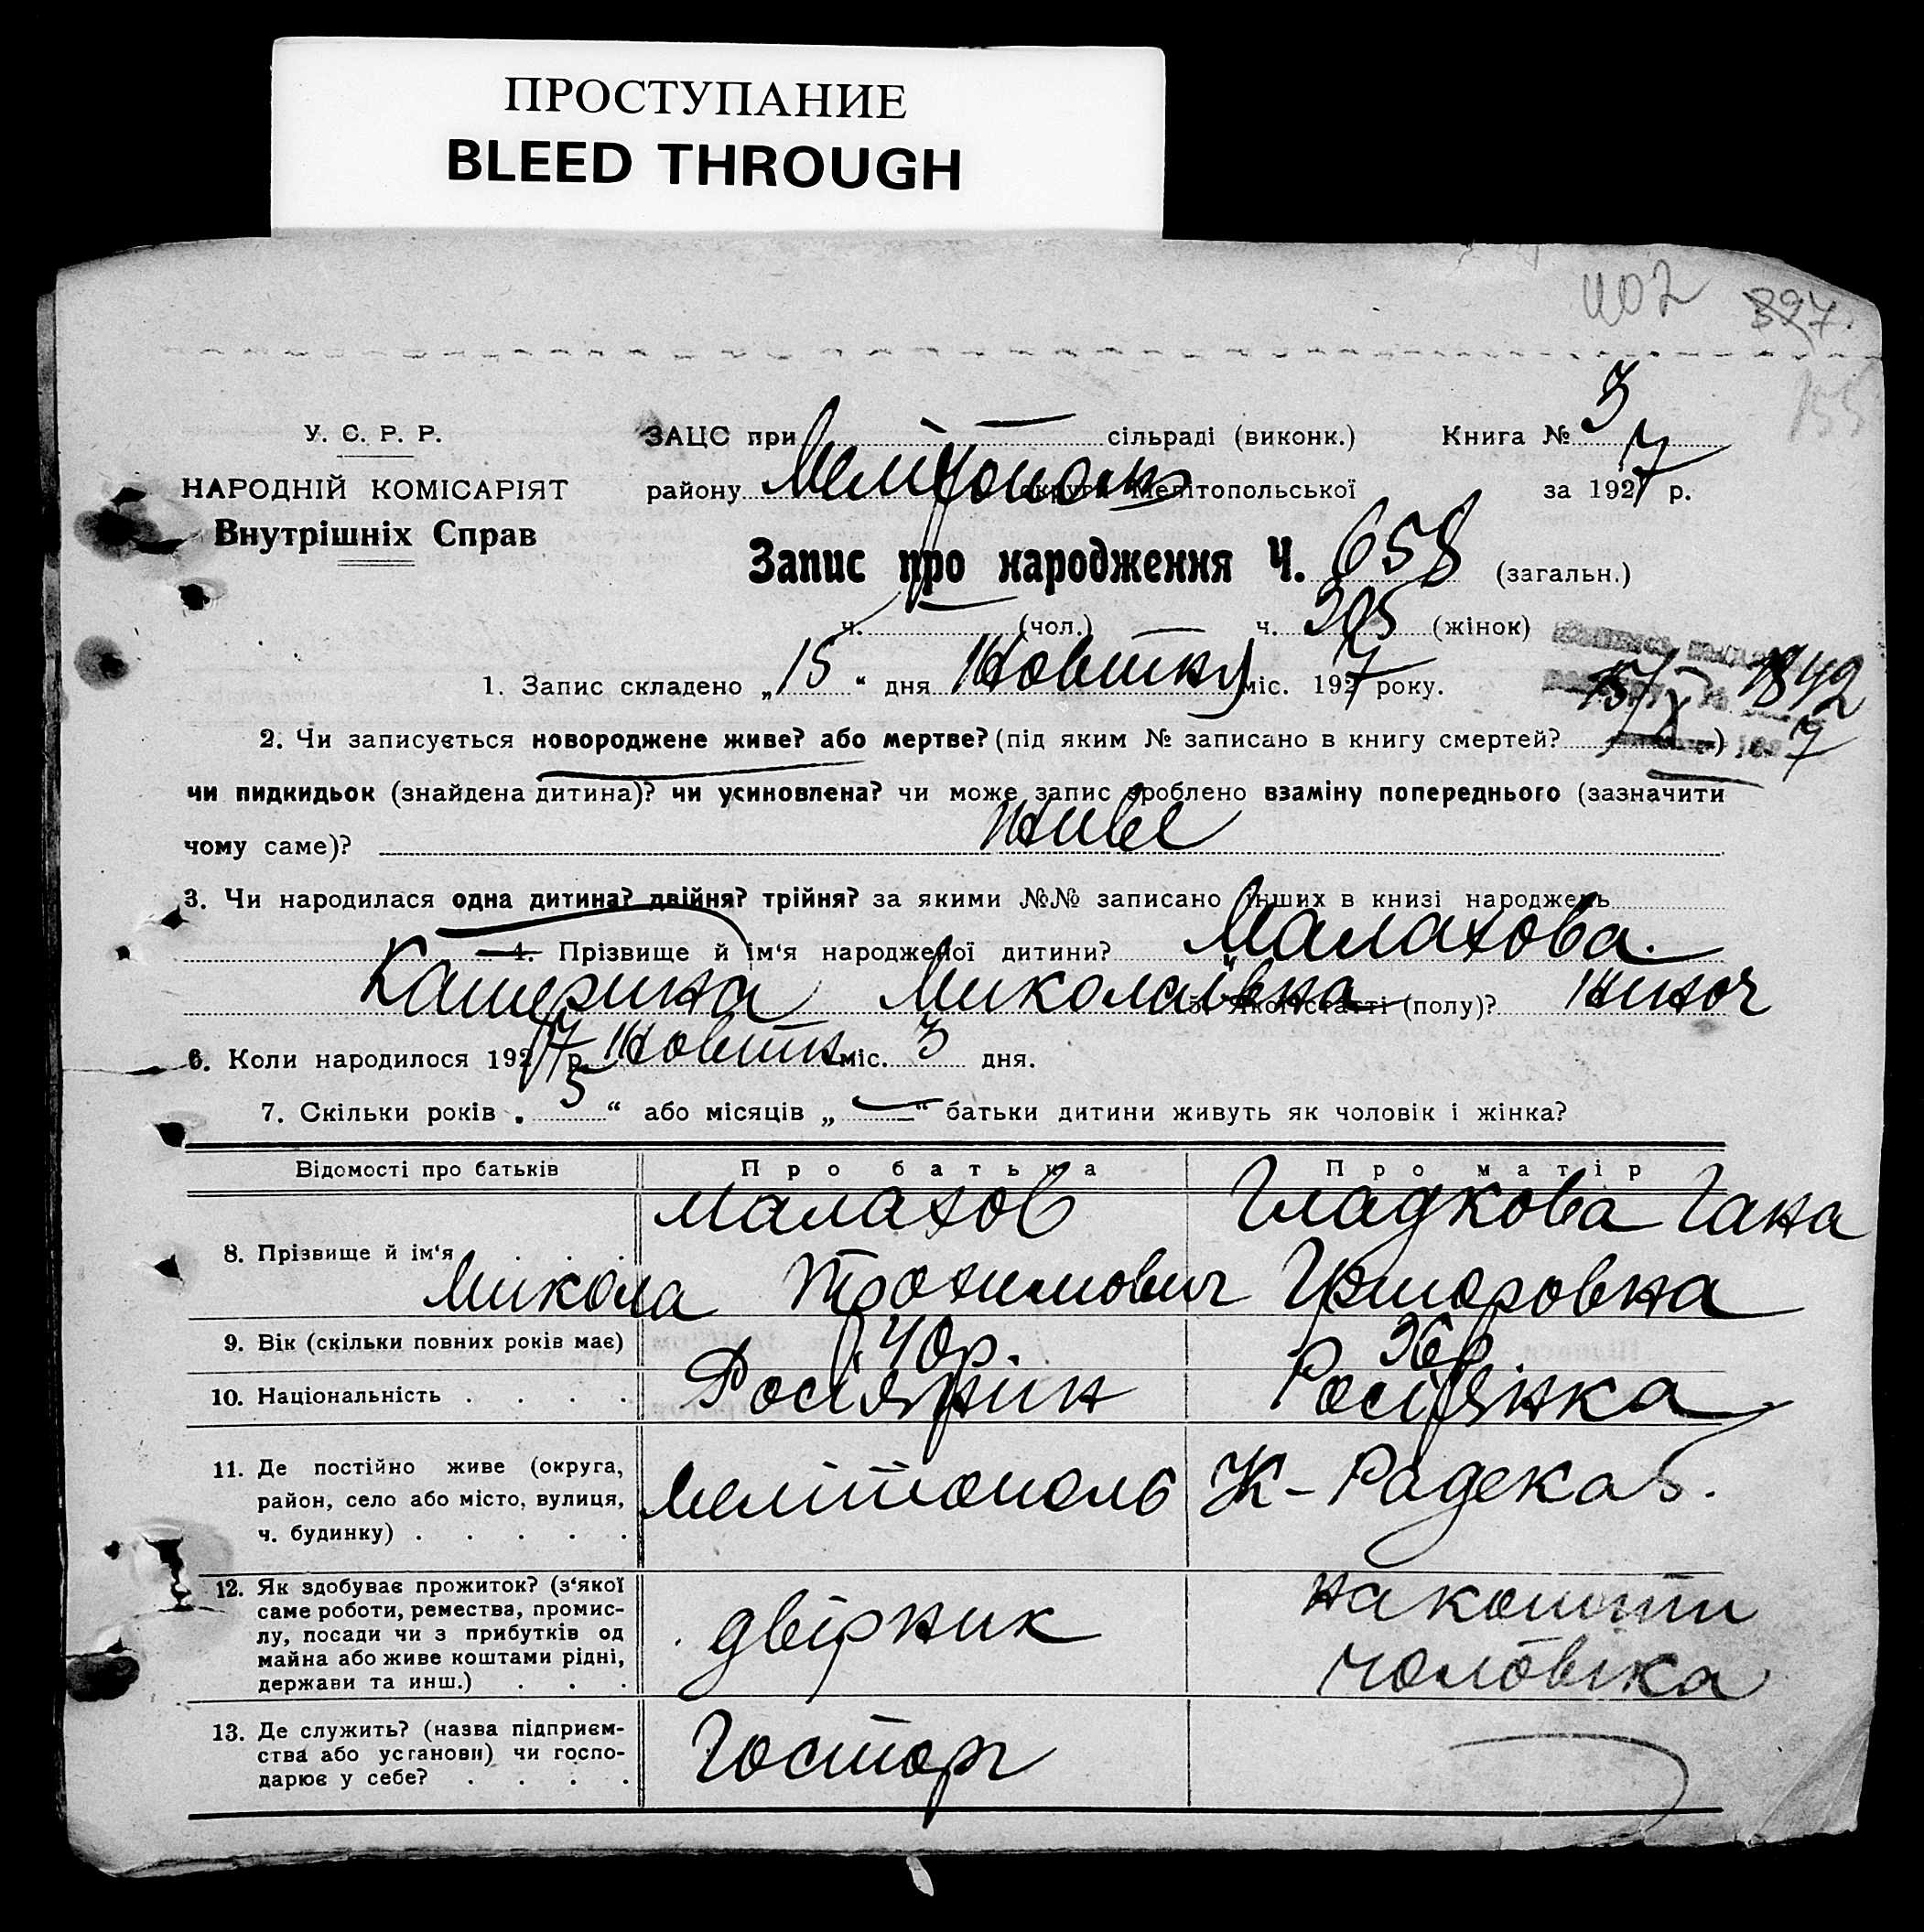 ПРОСТУПАНИЕ
BLEED THROUGH
402 397.
155
У. С. Р. Р.
НАРОДНІЙ КОМІСАРІЯТ
Внутрішніх Справ
ЗАЦС при — сільраді (виконк.) Книга № 3
району Мелітополь округи Мелітопольської за 1927 р.
Запис про народження Ч. 658 (загальн.)
ч. — (чол.) ч. 305 (жінок)
1. Запис складено „15“ дня Жовтня міс. 1927 року.
15/X 1842
2. Чи записується новороджене живе? або мертве? (під яким № записано в книгу смертей? —) 7
чи пидкидьок (знайдена дитина)? чи усиновлена? чи може запис зроблено взаміну попереднього (зазначити
чому саме)? живе
3. Чи народилася одна дитина? двійня? трійня? за якими №№ записано інших в книзі народжень
4. Прізвище й ім‘я народженої дитини? Малахова.
Катерина Миколаївна 5. Якої статі (полу)? жіноч
6. Коли народилося 1927 р. Жовтн міс. 3 дня.
7. Скільки років „5“ або місяців „—“ батьки дитини живуть як чоловік і жінка?
Відомості про батьків Про батька Про матір
8. Прізвище й ім‘я . . . Малахов Микола Трохимович Гладкова Гана Григоровна
9. Вік (скільки повних років має) 40р. 36р.
10. Національність . . . . Росіянин Росіянка
11. Де постійно живе (округа,
район, село або місто, вулиця,
ч. будинку) . . . . . Мелітополь К-Радека 5.
12. Як здобуває прожиток? (з‘якої
саме роботи, ремества, промис-
лу, посади чи з прибутків од
майна або живе коштами рідні,
держави та инш.) . . . двірник на кошти чоловіка
13. Де служить? (назва підприєм-
ства або установи) чи госпо-
дарює у себе? . . . . Госторг —